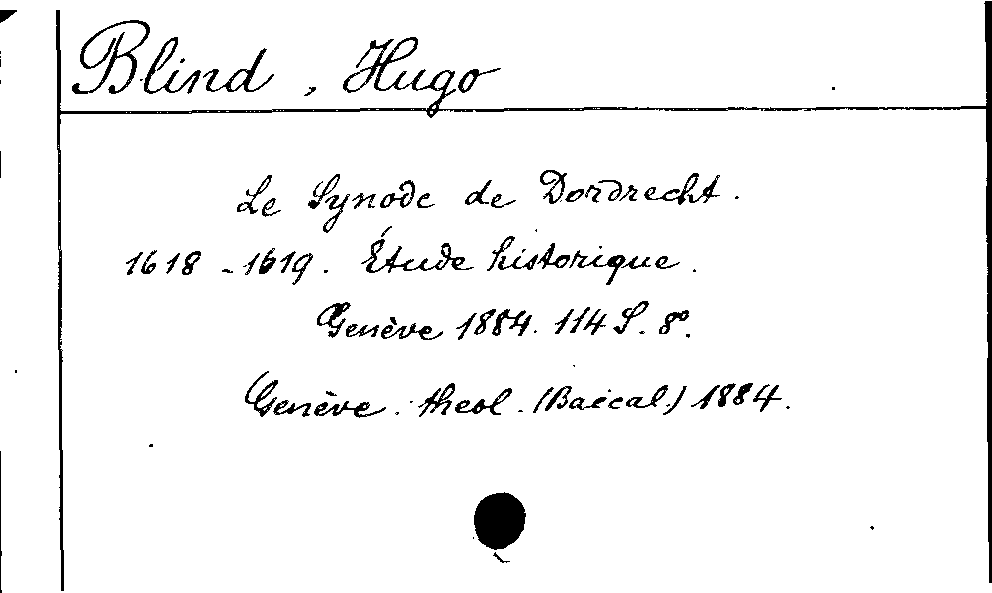 Blind, Hugo
Le Synode de Dordrecht.
1618-1619. Étude historique.
Genève 1884. 114 S. 8°.
Genève. theol. (Baccal.) 1884.